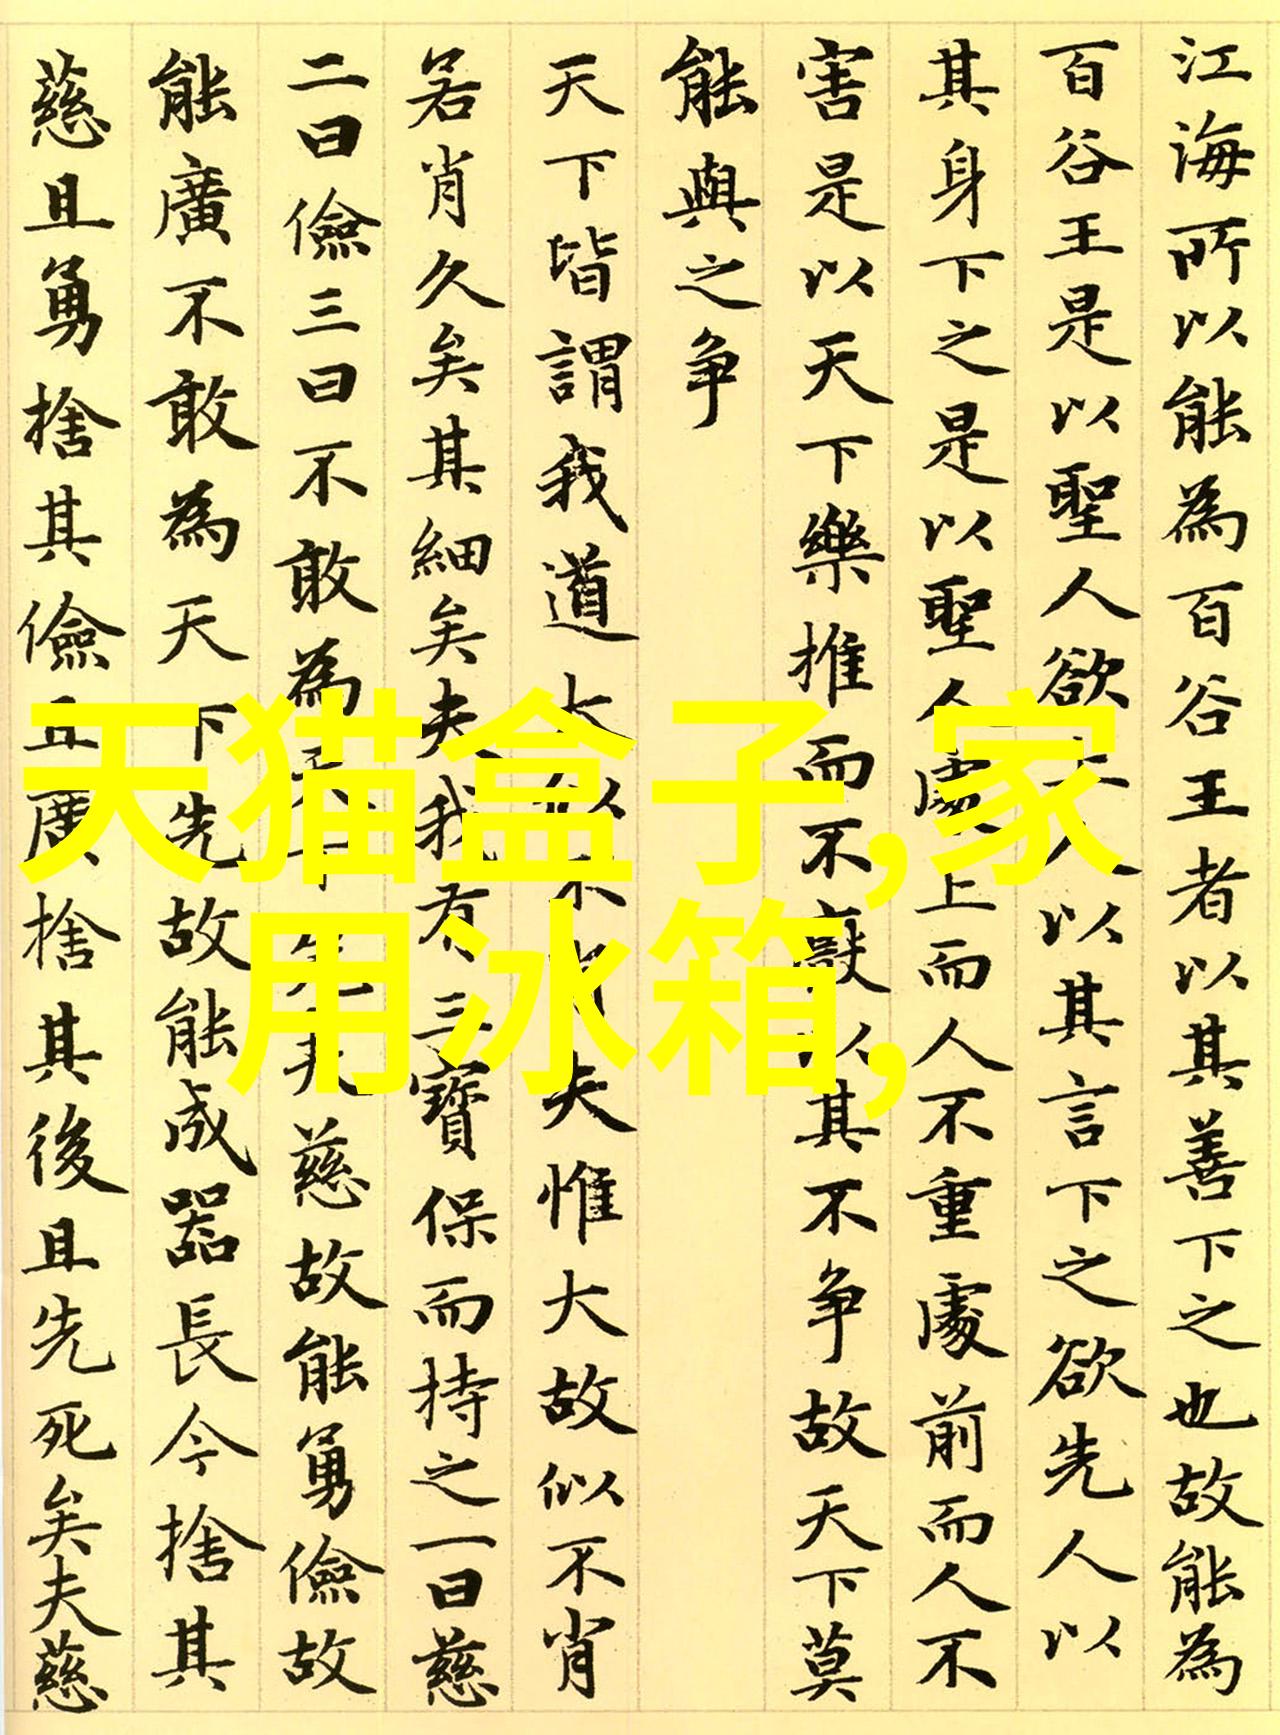 江海所以能為百谷王者以其善下之也故能為
百谷王是以聖人欲上人以其言下之欲先人以
其身下之是以聖人處上而人不重處前而人不
害是以天下樂推而不厭以其不争故天下莫
能與之争
天下皆謂我道大似不肖夫惟大故似不肖
若肖久矣其細矣夫我有三寶保而持之一曰慈
二曰儉三曰不敢為天下先夫慈故能勇儉故
能廣不敢為天下先故能成器長今捨其
慈且勇捨其儉且廣捨其後且先死矣夫慈
天猫盒子,家
用冰箱,